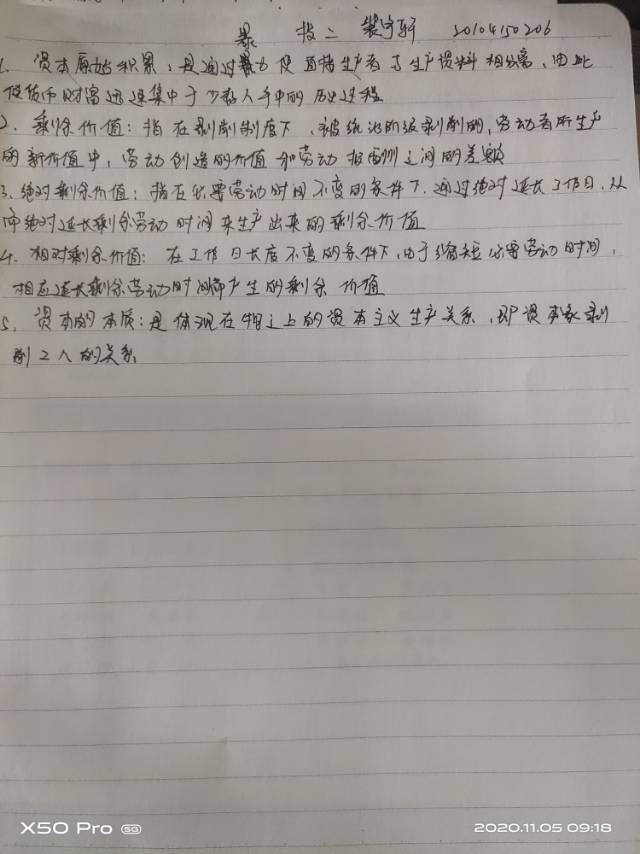 暴 技二 裴宇轩 20104150206
1. 资本原始积累：是通过暴力使直接生产者与生产资料相分离，由此
使货币财富迅速集中于少数人手中的历史过程
2. 剩余价值：指在剥削制度下，被统治阶级剥削的，劳动者所生产
的新价值中，劳动创造的价值和劳动报酬之间的差额
3. 绝对剩余价值：指在必要劳动时间不变的条件下，通过绝对延长工作日，从
而绝对延长剩余劳动时间来生产出来的剩余价值
4. 相对剩余价值：在工作日长度不变的条件下，由于缩短必要劳动时间，
相应延长剩余劳动时间而产生的剩余价值
5. 资本的本质：是体现在物之上的资本主义生产关系，即资本家剥
削工人的关系
X50 Pro 5G
2020.11.05 09:18